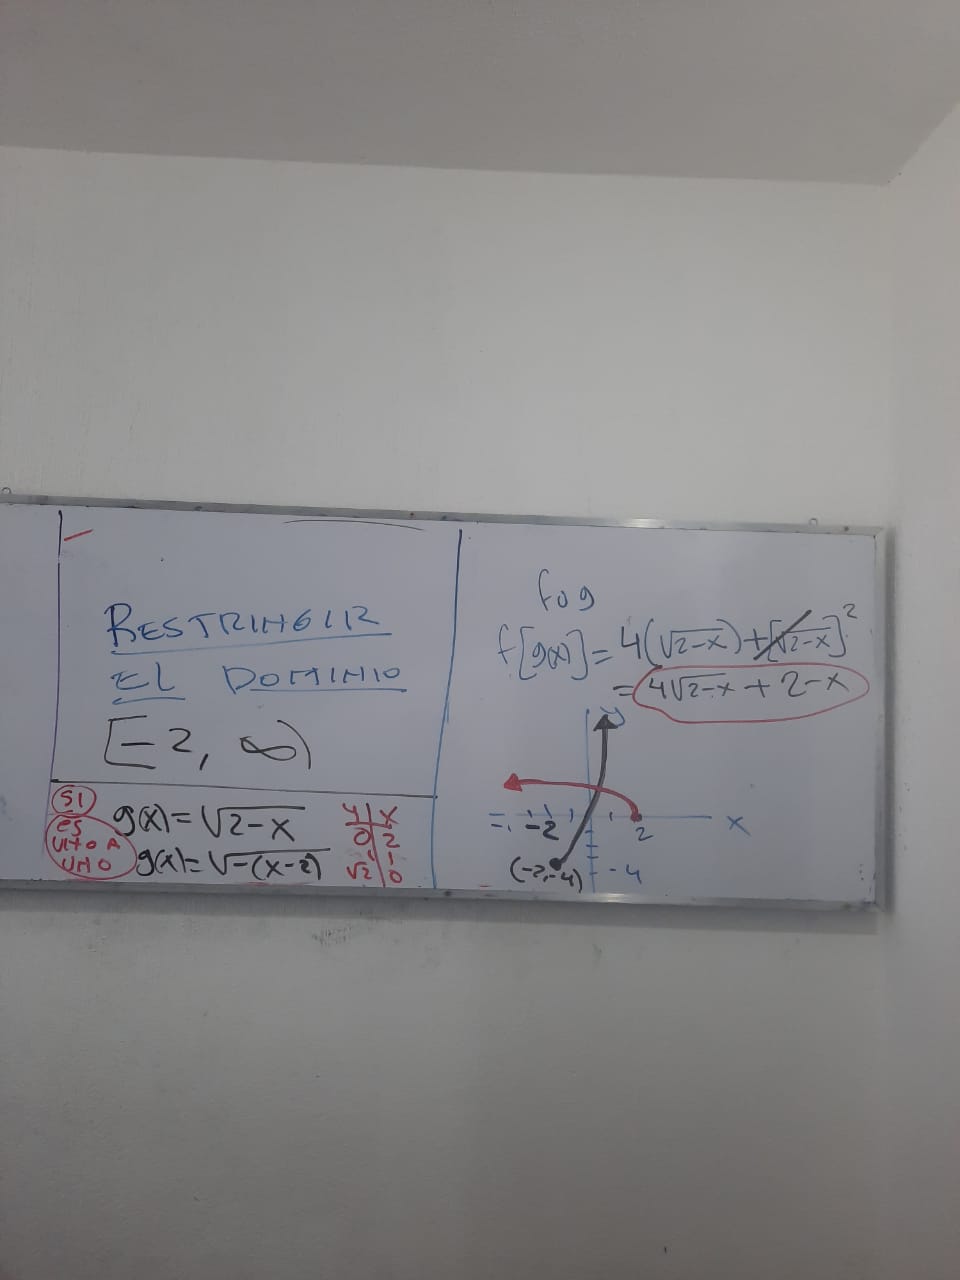 RESTRINGIR
EL DOMINIO
[-2, ∞)
SI
ES
UNO A
UNO
g(x)=√2-x
g(x)=√-(x-2)
y | x
0 | 2
1 | 1
√2 | 0
fog
f[g(x)]=4(√2-x)+[√2-x]²
=4√2-x + 2-x
y
-2
2
x
(-2,-4)
-4